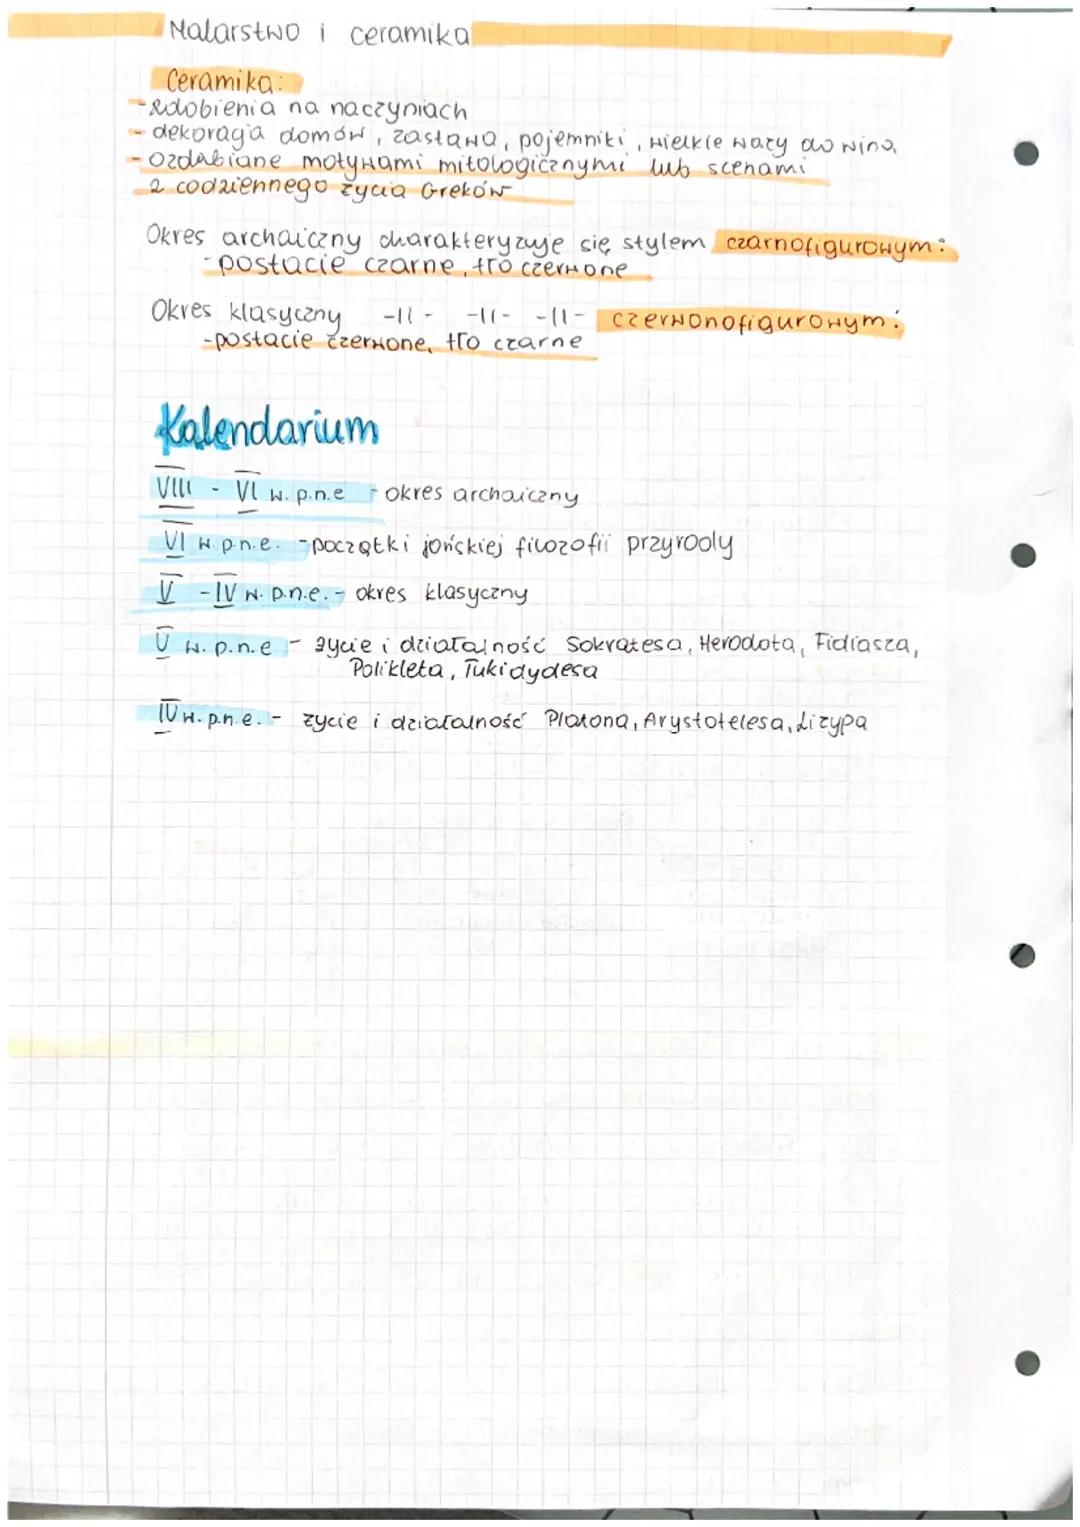 Malarstwo i ceramika
Ceramika:
- zdobienia na naczyniach
- dekoracja domów, zastawa, pojemniki, wielkie wazy do wina
- ozdabiane motywami mitologicznymi lub scenami
z codziennego życia Greków
Okres archaiczny charakteryzuje się stylem czarnofigurowym:
- postacie czarne, tło czerwone
Okres klasyczny -11- -11- -11- czerwonofigurowym:
- postacie czerwone, tło czarne
Kalendarium
VIII - VI w. p.n.e - okres archaiczny
VI w. p.n.e. - początki jońskiej filozofii przyrody
V - IV w. p.n.e. - okres klasyczny
V w. p.n.e - życie i działalność Sokratesa, Herodota, Fidiasza,
Polikleta, Tukidydesa
IV w. p.n.e. - życie i działalność Platona, Arystotelesa, Lizypa